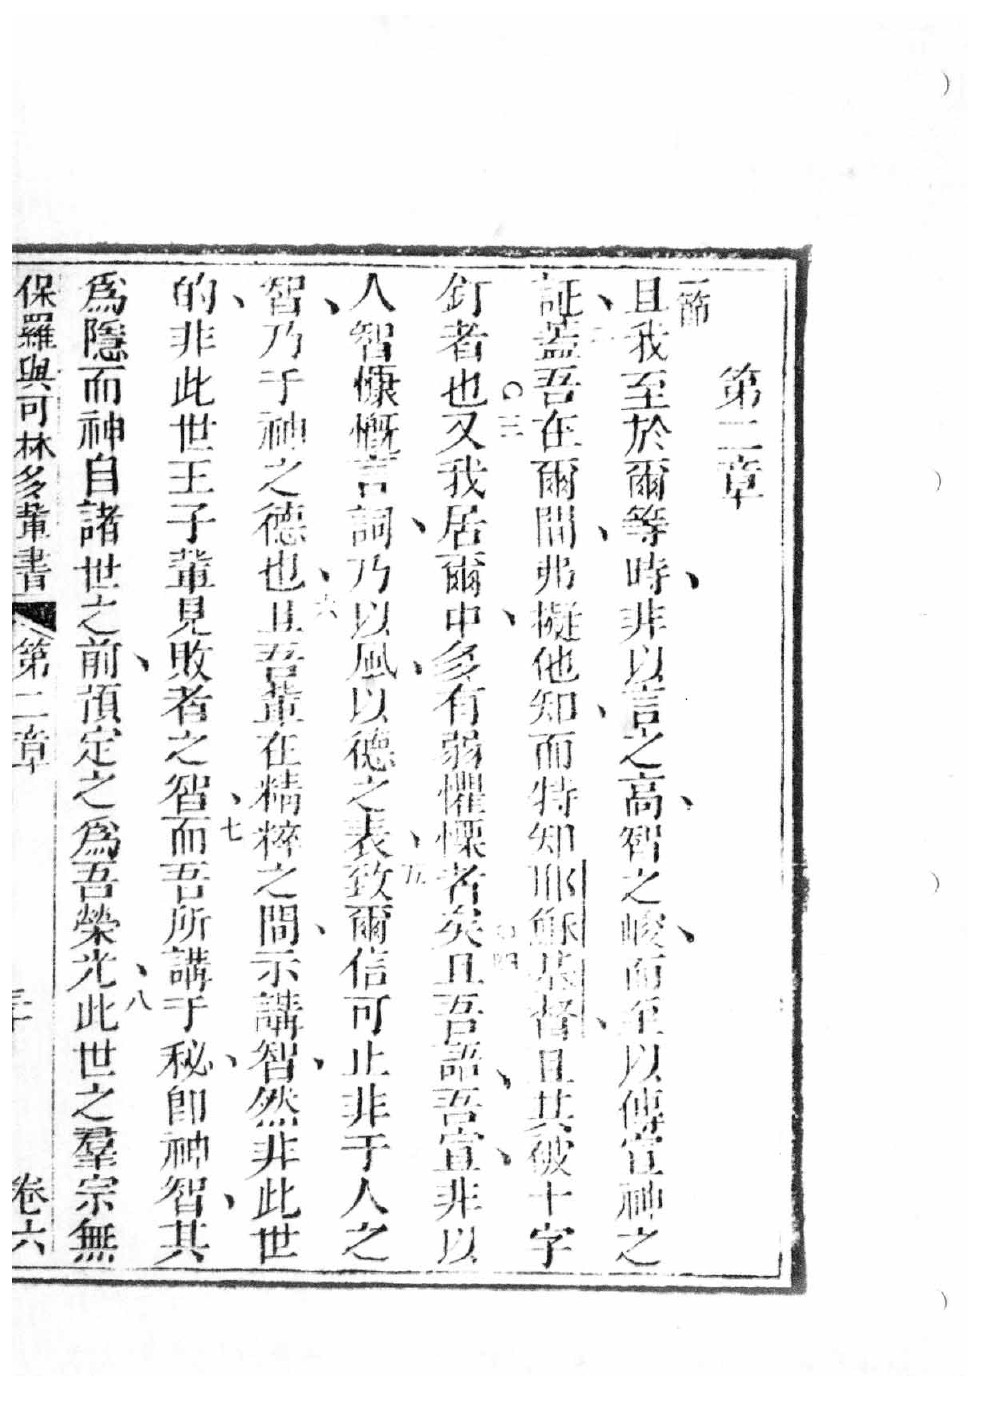 第二章
一節
且我至於爾等時、非以言之高、智之峻、而至以傳宣神之
証、二蓋吾在爾間、弗擬他知、而特知耶穌基督、且其被十字
釘者也。三又我居爾中、多有弱懼慄者矣。四且吾語、吾宣、非以
人智慷慨言詞、乃以風、以德之表、五致爾信可止非于人之
智、乃于神之德也、六且吾輩在精粹之間、示講智、然非此世
的、非此世王子輩見敗者之智、七而吾所講于秘、即神智、其
爲隱而神自諸世之前、預定之爲吾榮光、八此世之羣宗無
保羅與可林多輩書 第二章 卷六